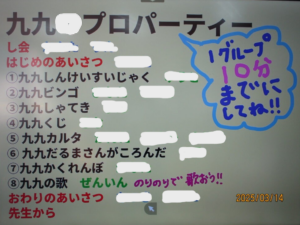 九九 プロパーティー
し会
はじめのあいさつ
①九九しんけいすいじゃく
②九九ビンゴ
③九九しゃてき
④九九くじ
⑤ 九九カルタ
⑥ 九九だるまさんがころんだ
⑦九九かくれんぼ
⑧九九の歌 ぜんいん のりのりで歌おう!!
おわりのあいさつ
先生から
1グループ
10分
までに
してね!!